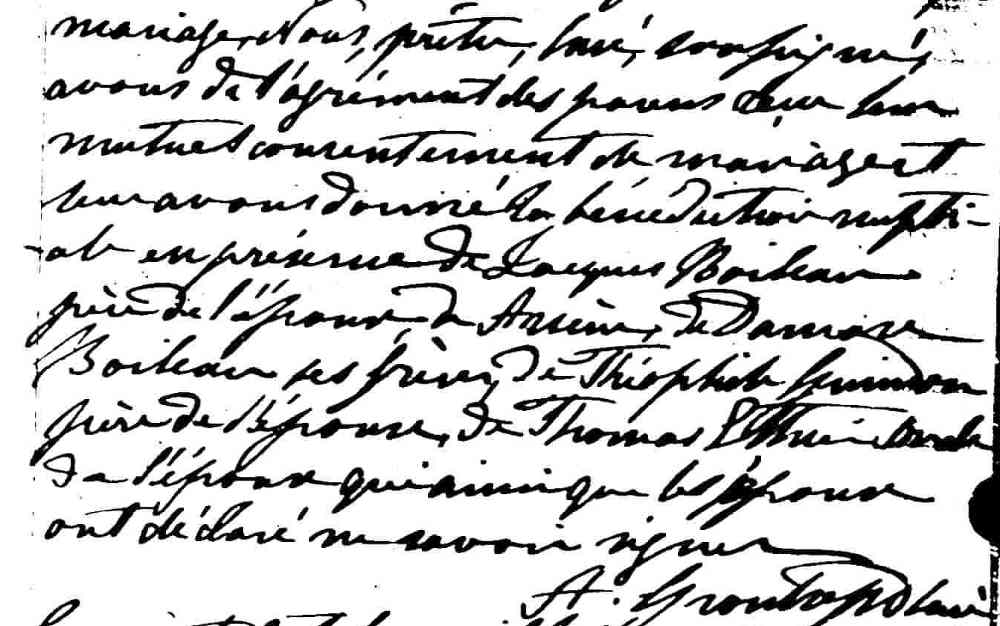 mariage, Nous, prêtre, curé, soussigné,
avons de l'agrément des parens reçu leur
mutuel consentement de mariage et
leur avons donné la bénédiction nupti-
ale en présence de Jacques Boileau
père de l'époux, de Arsène, de Damase
Boileau ses frères, de Théophile Guindon
père de l'épouse, de Thomas oncle
de l'époux qui ainsi que les époux
ont déclaré ne savoir signer
A. Ptre curé